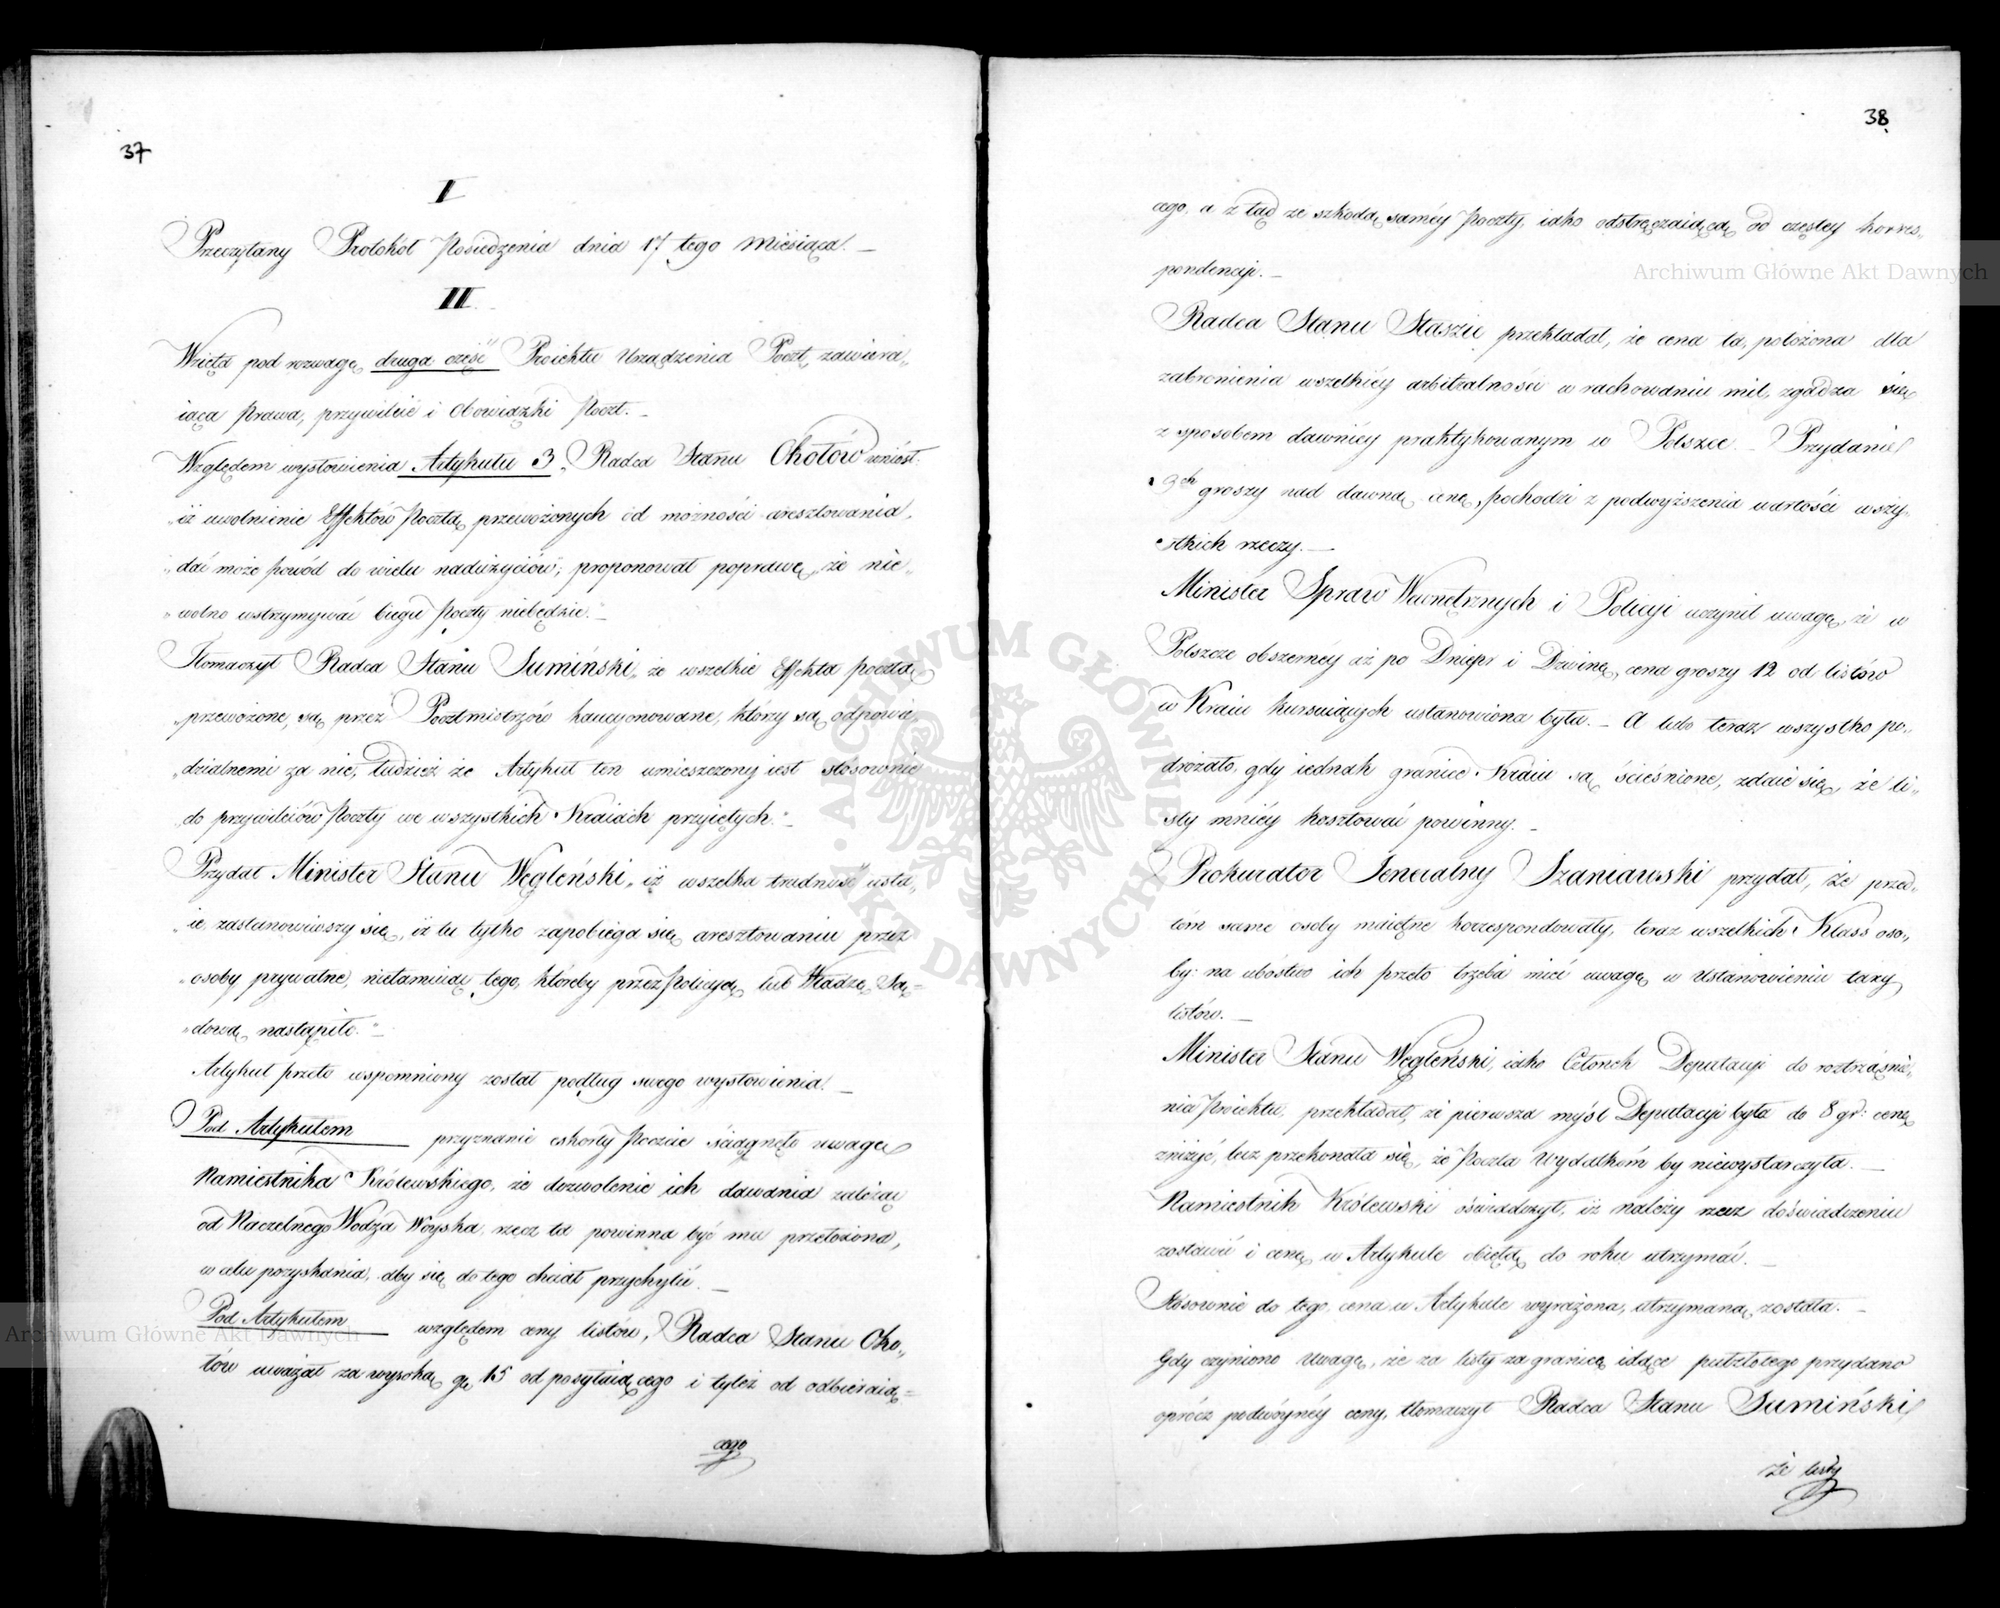 37
I
Przeczytany Protokół Posiedzenia dnia 17 tego Miesiąca. —
II
Wzięta pod rozwagę druga część Proiektu Urządzenia Poczt, zawiera„
iąca Prawa, przywileie i Obowiązki Poczt. —
Względem wysłowienia Artykułu 3. Radca Stanu Okołów wniósł:
„iż uwolnienie Effektów Pocztą przewożonych od możności aresztowania,
„dać może powód do wielu nadużyciów; proponował poprawę, że nie„
„wolno wstrzymywać biegu Poczty niebędzie. —
Tłomaczył Radca Stanu Sumiński, „że wszelkie Effekta pocztą
„przewożone, są przez Pocztmistrzów kaucyonowane, którzy są odpowie„
„dzialnemi za nie, tudzież że Artykuł ten umieszczony iest stosownie
„do przywileiów Poczty we wszystkich Kraiach przyiętych.” —
Przydał Minister Stanu Węgleński, „iż wszelka trudność usta„
„ie, zastanowiwszy się, iż tu tylko zapobiega się aresztowaniu przez
„osoby prywatne, nietamuiąc tego, któreby przez Policyą lub Władzę Są=
„dową nastąpiło.” —
Artykuł przeto wspomniony został podług swego wysłowienia. —
Pod Artykułem przyznanie eskorty Poczcie ściągnęło uwagę
Namiestnika Królewskiego, że dozwolenie ich dawania zależąc
od Naczelnego Wodza Woyska, rzecz ta powinna być mu przełożona,
w celu pozyskania, aby się do tego chciał przychylić. —
Pod Artykułem względem ceny listów, Radca Stanu Oko„
łów uważał za wysoką gr 15 od posyłaiącego i tyleż od odbieraią=
cego
38
cego, a z tąd ze szkodą saméy Poczty, iako odstręczaiącą od częstey korres„
pondencyi. —
Radca Stanu Staszic przekładał, że cena ta, położona dla
zabronienia wszelkiéy arbitralności w rachowaniu mil, zgadza się
z sposobem dawniéy praktykowanym w Polszce. — Przydanie
3ch groszy nad dawną cenę, pochodzi z podwyższenia wartości wszy„
stkich rzeczy. —
Minister Spraw Wewnętrznych i Policyi uczynił uwagę, że w
Polszcze obszerney aż po Dniepr i Dzwinę, cena groszy 12 od listów
w Kraiu kursuiących ustanowiona była. — A lubo teraz wszystko po„
drożało, gdy iednak granice Kraiu są ścieśnione, zdaie się, że li„
sty mniéy kosztować powinny. —
Prokurator Jeneralny Szaniawski przydał, że przed„
tém same osoby maiętne korrespondowały, teraz wszelkich Klass oso„
by: na ubóstwo ich przeto trzeba mieć uwagę w Ustanowieniu taxy
listów. —
Minister Stanu Węgleński, iako Członek Deputacyi do roztrząśnie„
nia Proiektu, przekładał, że pierwsza myśl Deputacyi była do 8 gr: cenę
zniżyć, lecz przekonała się, że Poczta Wydatkom by niewystarczyła. —
Namiestnik Królewski oświadczył, iż należy rzecz doświadczeniu
zostawić i cenę w Artykule obiętą do roku utrzymać. —
Stosownie do tego, cena w Artykule wyrażona, utrzymaną została. —
Gdy czyniono Uwagę, że za listy za granicę idące półzłotego przydano
oprócz podwóynéy ceny, tłomaczył Radca Stanu Sumiński
że listy
Archiwum Główne Akt Dawnych
Archiwum Główne Akt Dawnych
ARCHIWUM GŁÓWNE AKT DAWNYCH